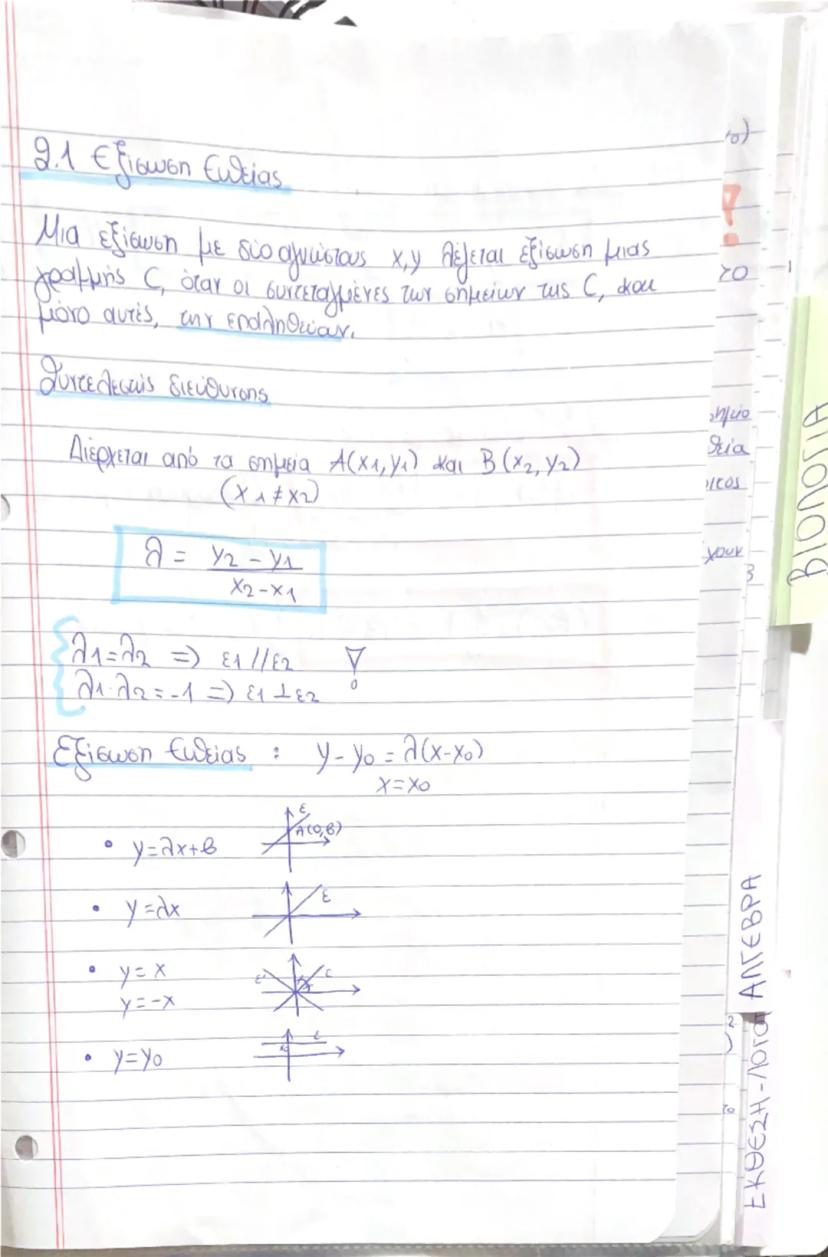 2.1 Εξίσωση Ευθείας
Μια εξίσωση με δύο αγνώστους x,y λέγεται εξίσωση μιας
γραμμής C, όταν οι συντεταγμένες των σημείων της C, και
μόνο αυτές, την επαληθεύουν.
Συντελεστής διεύθυνσης
Διέρχεται από τα σημεία A(x1,y1) και B(x2,y2)
(x1≠x2)
λ = y2-y1 / x2-x1
λ1=λ2 => ε1//ε2
λ1·λ2=-1 => ε1⊥ε2
Εξίσωση Ευθείας : y-y0=λ(x-x0)
x=x0
• y=λx+β
ε
A(0,β)
• y=λx
ε
• y=x
y=-x
ε' ε
• y=y0
ε
το
?
ΒΙΟΛΟΓΙΑ
ΑΛΓΕΒΡΑ
ΕΚΘΕΣΗ-ΛΟΓΟΤ